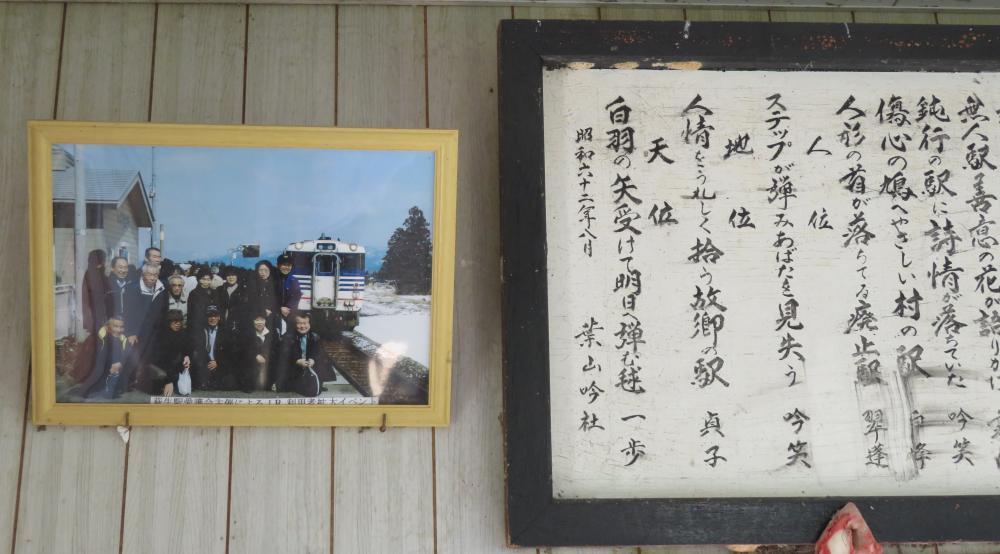 無人駅善意の花が
鈍行の駅に詩情が落ちていた 吟笑
傷心の鳩へやさしい村の駅
人形の首が落ちてる廃止駅 翠蓮
人位
ステップが弾みあばたを見失う 吟笑
地位
人情をうれしく拾う故郷の駅 貞子
天位
白羽の矢受けて明日へ弾む 一歩
昭和六十二年八月 葉山吟社
萩生駅愛護会主催によるJR利用者拡大イベント